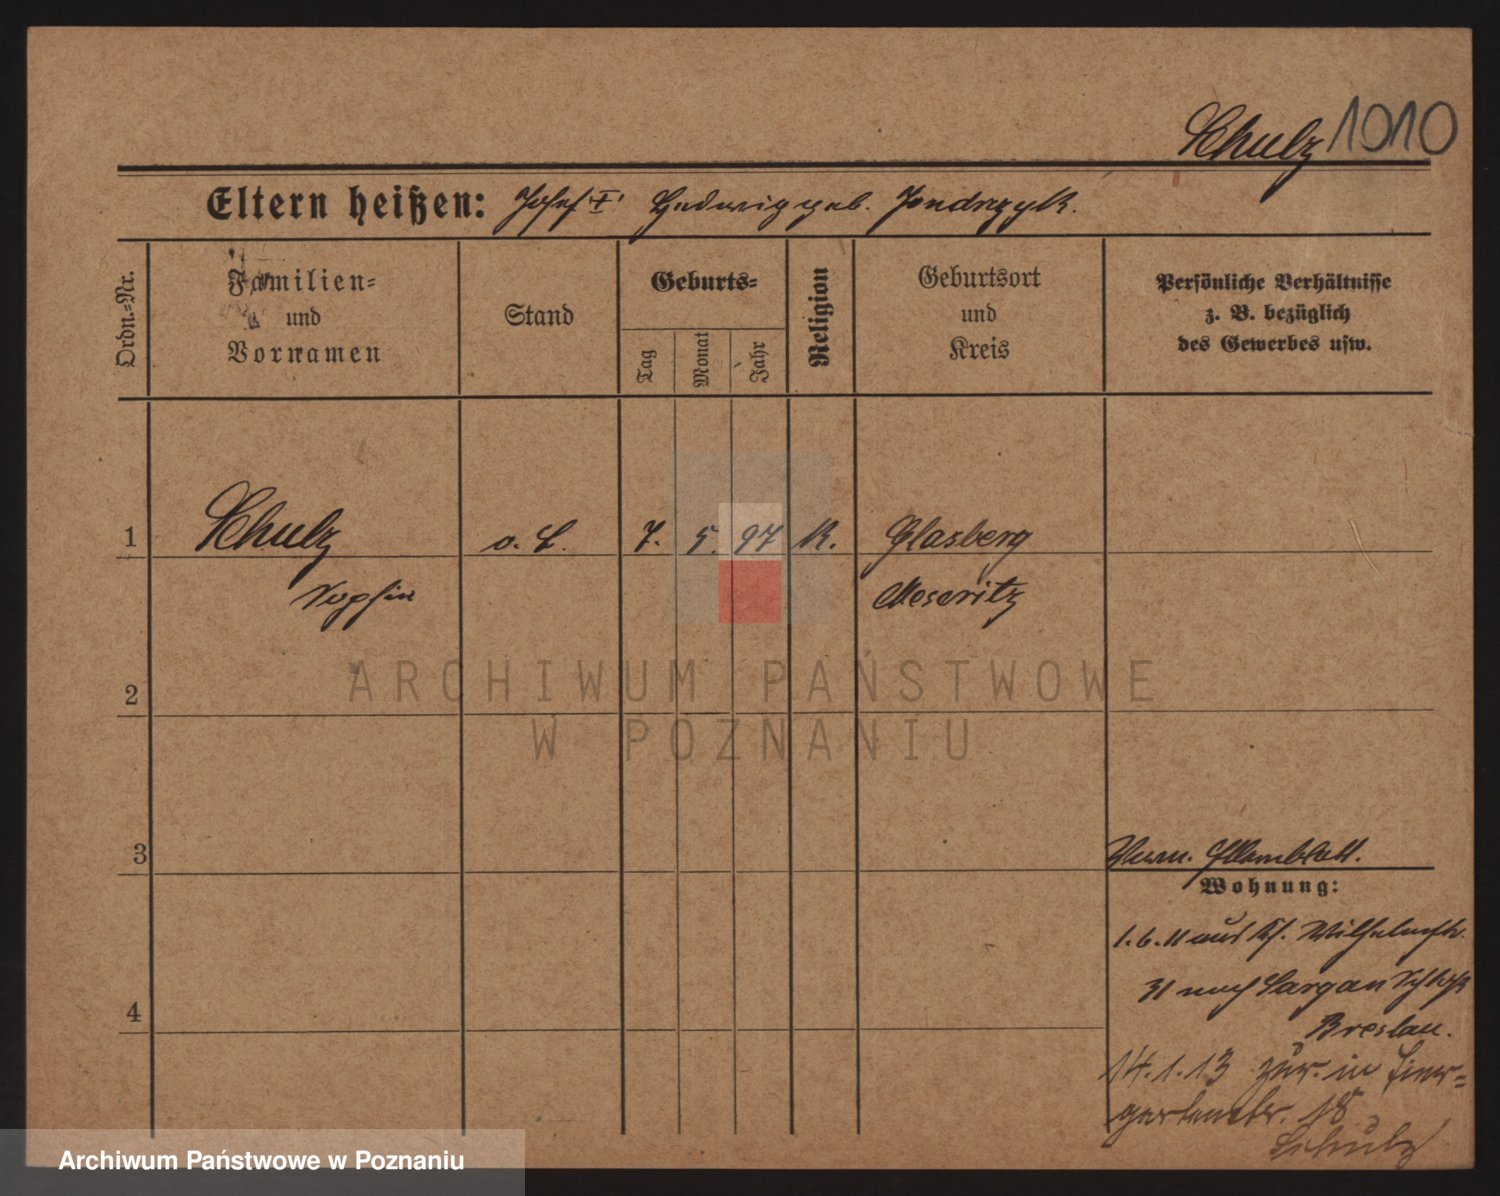 Schulz 1010
Eltern heißen: Josef u. Hedwig geb. Jendrzyk.
Ordn.-Nr.
Familien-
und
Vornamen
Stand
Geburts-
Tag
Monat
Jahr
Religion
Geburtsort
und
Kreis
Persönliche Verhältnisse
z. B. bezüglich
des Gewerbes usw.
1 Schulz o. B. 7. 5. 97 K. Glasberg
Sophie Meseritz
ARCHIWUM PAŃSTWOWE
W POZNANIU
2
3
Wohnung:
1.6.11 aus Wilhelmstr.
31 nach
Breslau.
14.1.13 zur. in Tier-
gartenstr. 18
Schulz
4
Archiwum Państwowe w Poznaniu